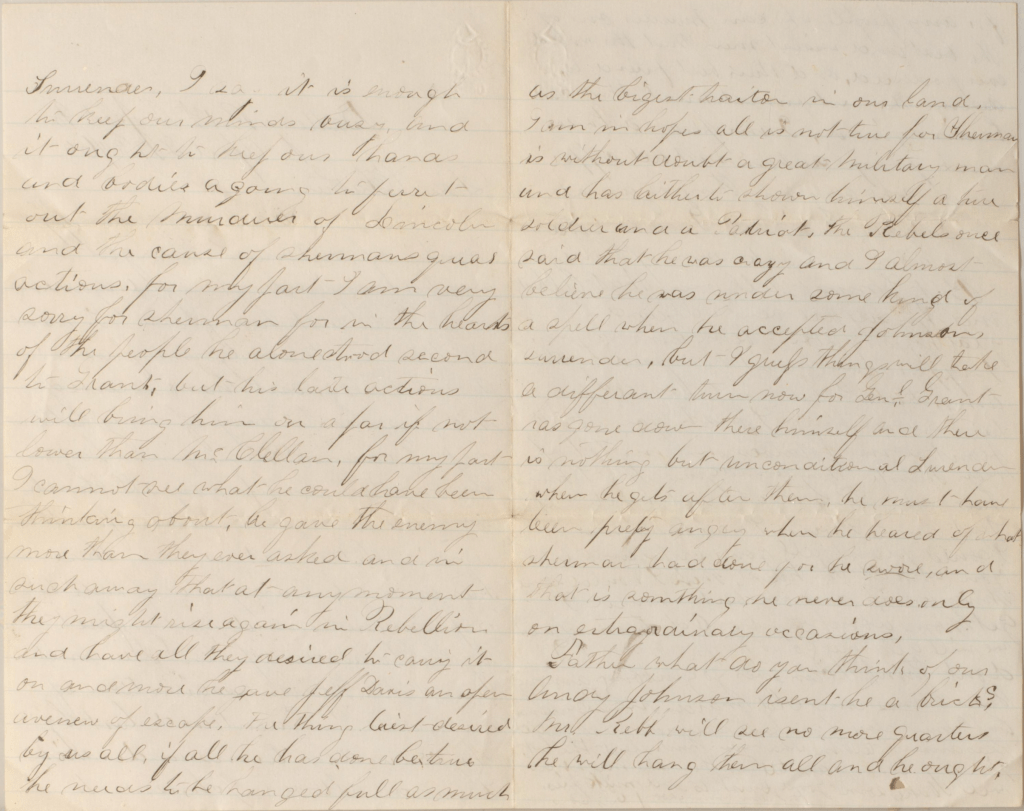 Surrender, I sa it is enough
to keep our minds busy, and
it ought to keep our hands
and bodies agoing to feret
out the murderer of Lincoln
and the cause of shermans great
actions. for my part I am very
sorry for sherman for in the hearts
of the people he alone stood second
to Grant, but his late actions
will bring him on a par if not
lower than McClellan, for my part
I cannot see what he could have been
thinking about. he gave the enemy
more than they ever asked and in
such away that at any moment
they might rise again in Rebellion
and have all they desired to carry it
on and more he gave Jeff Davis an open
avenew of escape. The thing least desired
by us all, if all he has done be true
he needs to be hanged full as much
as the bigest traitor in our land.
I am in hopes all is not true for Sherman
is without doubt a great Military man
and has hitherto shown himself a true
soldier and a Patriot, the Rebels once
said that he was crazy and I almost
believe he was under some kind of
a spell when he accepted Johnson,
surrender, but I guess things will take
a differant turn now for Genl. Grant
has gone down there himself and there
is nothing but unconditional Surender
when he gets after them, he must have
been prety angry when he heared of what
sherman had done for he swore, and
that is somthing he never does only
on extraordinary occasions.
Father what do you think of our
Andy Johnson isent he a brick?
Mr. Rebb will see no more quarters
he will hang them all and he ought.